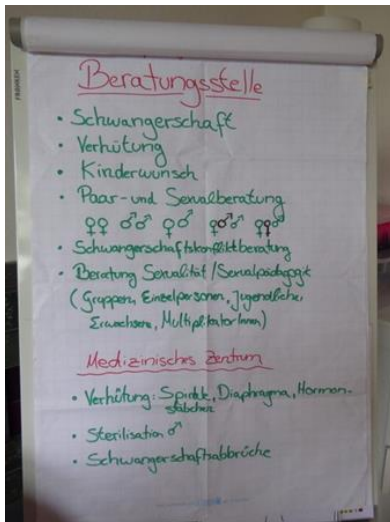 Beratungsstelle
• Schwangerschaft
• Verhütung
• Kinderwunsch
• Paar- und Sexualberatung
♀♀ ♂♂ ♀♂ ♀♂♂ ♀♀♂
• Schwangerschaftskonfliktberatung
• Beratung Sexualität/Sexualpädagogik
(Gruppen, Einzelpersonen, Jugendliche,
Erwachsene, MultiplikatorInnen)
Medizinisches Zentrum
• Verhütung: Spirale, Diaphragma, Hormon-
stäbchen
• Sterilisation ♂
• Schwangerschaftsabbrüche